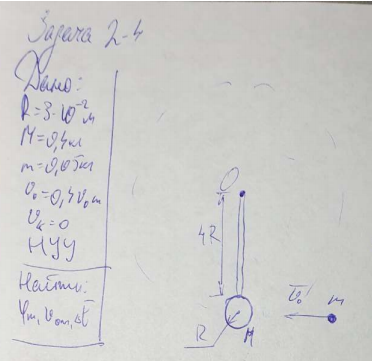 Задача 2-4
Дано:
R=3·10⁻²м
M=0,4кг
m=0,05кг
υ₀=0,4υ₀ₘ
υₖ=0
НУУ
Найти:
φₘ, υ₀ₘ, ΔE
O
4R
R
M
υ₀
m